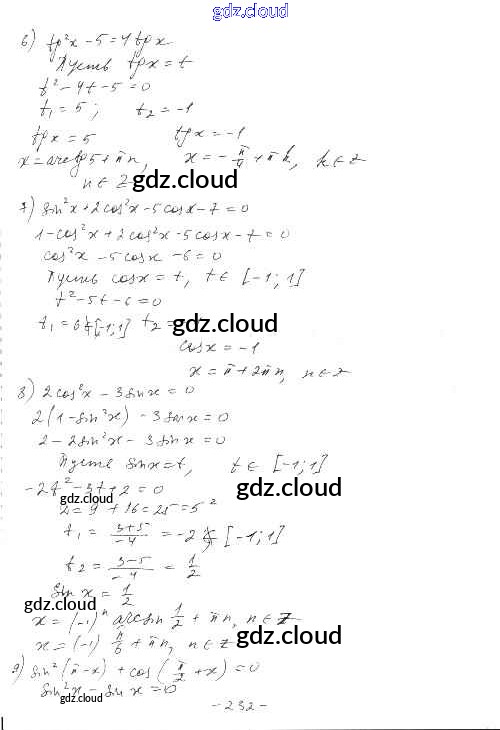 gdz.cloud
6) tg²x - 5 = 4 tg x
Пусть tg x = t
t² - 4t - 5 = 0
t₁ = 5; t₂ = -1
tg x = 5 tg x = -1
x = arctg 5 + πn, x = -π/4 + πk, k ∈ Z
n ∈ Z
gdz.cloud
7) sin²x + 2cos²x - 5cosx - 7 = 0
1 - cos²x + 2cos²x - 5cosx - 7 = 0
cos²x - 5cosx - 6 = 0
Пусть cosx = t, t ∈ [-1; 1]
t² - 5t - 6 = 0
t₁ = 6 ∉ [-1; 1] t₂ =
gdz.cloud
cosx = -1
x = π + 2πn, n ∈ Z
8) 2cos²x - 3sinx = 0
2(1 - sin²x) - 3sinx = 0
2 - 2sin²x - 3sinx = 0
Пусть sinx = t, t ∈ [-1; 1]
-2t² - 3t + 2 = 0
gdz.cloud
D = 9 + 16 = 25 = 5²
t₁ = (3+5)/-4 = -2 ∉ [-1; 1]
gdz.cloud
t₂ = (3-5)/-4 = 1/2
sin x = 1/2
gdz.cloud
x = (-1)ⁿ arcsin 1/2 + πn, n ∈ Z
x = (-1)ⁿ π/6 + πn, n ∈ Z
gdz.cloud
9) sin²(π - x) + cos(π/2 + x) = 0
sin²x - sin x = 0
gdz.cloud
- 232 -